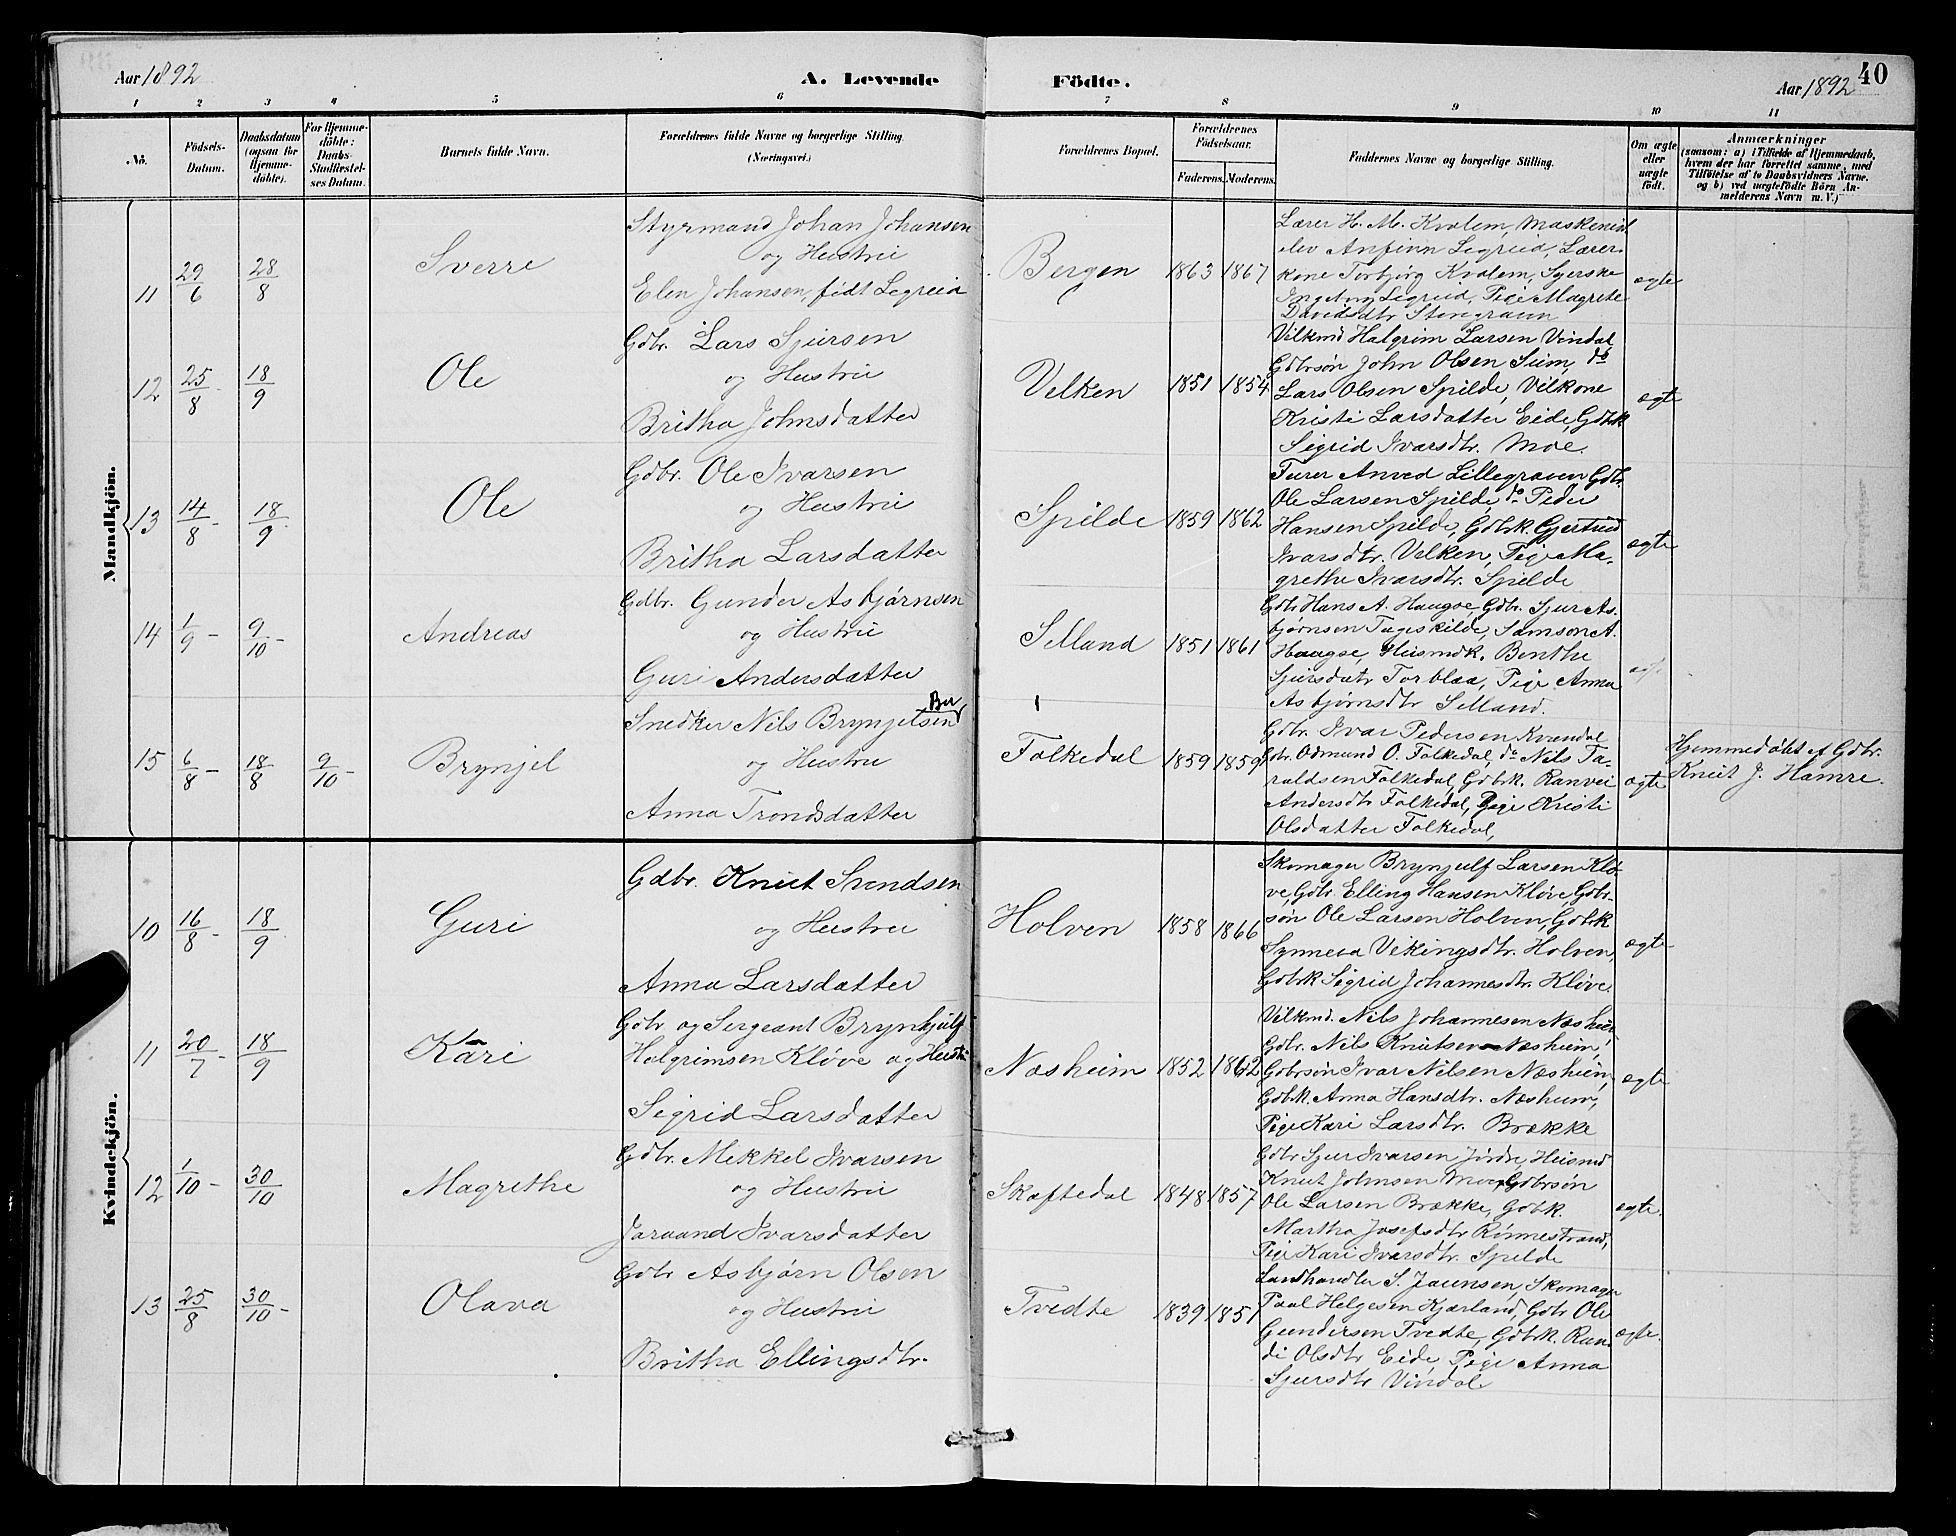 Aar 1892
A. Levende Födte.
Aar 1892
40
1 2 3 4 5 6 7 8 9 10 11
No.
Födsels-
Datum.
Daabsdatum
(ogsaa for
Hjemme-
döbte).
For Hjemme-
döbte:
Daabs-
Stadfæstel-
ses Datum.
Barnets fulde Navn.
Forældrenes fulde Navne og borgerlige Stilling.
(Næringsvei.)
Forældrenes Bopæl.
Forældrenes
Födselsaar.
Faderens. Moderens.
Faddernes Navne og borgerlige Stilling.
Om ægte
eller
uægte
födt.
Anmærkninger
(saasom: a) i Tilfælde af Hjemmedaab,
hvem der har forrettet samme, med
Tilföielse af to Daabsvidners Navne.
og b) ved uægtefödte Börn An-
melderens Navn m. V.)
Mandkjön.
11 29/6 28/8 Sverre
Styrmand Johan Johansen
og Hustru
Elen Johansen, født Legreid
Bergen 1863 1867
Lærer H. M. Kvalem, Maskenist
elev Anfinn Legreid, Lærer-
kone Torbjørg Kvalem, Syerske
Ingeborg Legreid, Pige Magrete
Davidsdtr Stenegraven
ægte
12 25/8 18/9 Ole
Gdbr. Lars Sjursen
og Hustru
Britha Johnsdatter
Velken 1851 1854
Vilkmd Halgrim Larsen Vindal
Gdbrsøn John Olsen Sum, do
Lars Olsen Spilde, Vilkone
Kristi Larsdatter Eide, Gdbrk
Sigrid Ivarsdtr. Moe.
ægte
13 14/8 - 18/9 Ole
Gdbr. Ole Ivarsen
og Hustru
Britha Larsdatter
Spilde 1859 1862
Furer Anved Lillegraven Gdbr.
Ole Larsen Spilde, do Peder
Hansen Spilde, Gdbrk. Gjertrud
Ivarsdtr. Velken, Pige Ma-
grethe Ivarsdtr. Spilde
ægte
14 1/9 - 9/10 - Andreas
Gdbr. Gunder Asbjørnsen
og Hustru
Guri Andersdatter
Selland 1851 1861
Gdbr Hans A. Haugse, Gdbr. Sjur As-
bjørnsen Tageskilde, Samson A.
Haugse, Husmdk. Benthe
Sjursdatr Torblaa, Pige Anna
Asbjørnsdtr Selland.
ægte
15 6/8 - 18/8 9/10 - Brynjel
Snedker Nils Brynjelsen
og Hustru
Anna Trondsdatter
Folkedal 1859 1859
Gdbr. Ivar Pedersen Kvandal
Gdbr. Odmund O. Folkedal, do Nils Ta-
raldsen Folkedal, Gdbrk. Ranvei
Andersdtr Folkedal, Pige Kristi
Olsdatter Folkedal,
ægte
Hjemmedøbt af Gdbr.
Knut J. Hamre.
Kvindekjön.
10 16/8 - 18/9 Guri
Gdbr. Knut Svendsen
og Hustru
Anna Larsdatter
Holven 1858 1866
Skomager Brynjulf Larsen Klø-
ve, Gdbr Elling Hansen Kløve, Gdbr-
søn Ole Larsen Holven, Gdbrk
Synneva Vikingsdtr. Holven,
Gdbrk Sigrid Johannesdtr. Kløve
ægte
11 20/7 - 18/9 Kari
Gdbr og Sergeant Brynhjulf
Halgrimsen Kløve og Hustr
Sigrid Larsdatter
Næsheim 1852 1862
Vilkmd. Nils Johannesen Næsheim,
Gdbr. Nils Knutsen Næsheim,
Gdbrsøn Ivar Nilsen Næsheim,
Gdbk. Anna Hansdtr. Næsheim,
Pige Kari Larsdtr. Brække
ægte
12 1/10 - 30/10 Magrethe
Gdbr. Mikkel Ivarsen
og Hustru
Jaraand Ivarsdatter
Skaftedal 1848 1857
Gdbr Sjur Ivarsen Jørdre, Husmd
Knut Johnsen Moe, Gdbrsøn
Ole Larsen Brække, Gdbk.
Martha Josefsdtr Rønnestrand,
Pige Kari Ivarsdtr. Spilde
ægte.
13 25/8 30/10 - Olava
Gdbr Asbjørn Olsen
og Hustru
Britha Ellingsdtr.
Tvedte 1839 1851
Landhandler S. Jaunsen, Skomager
Paal Helgesen Kjærland, Gdbr Ole
Gundersen Tvedte, Gdbrk. Ran-
di Olsdtr Eide, Pige Anna
Sjursdtr Vindal
ægte.